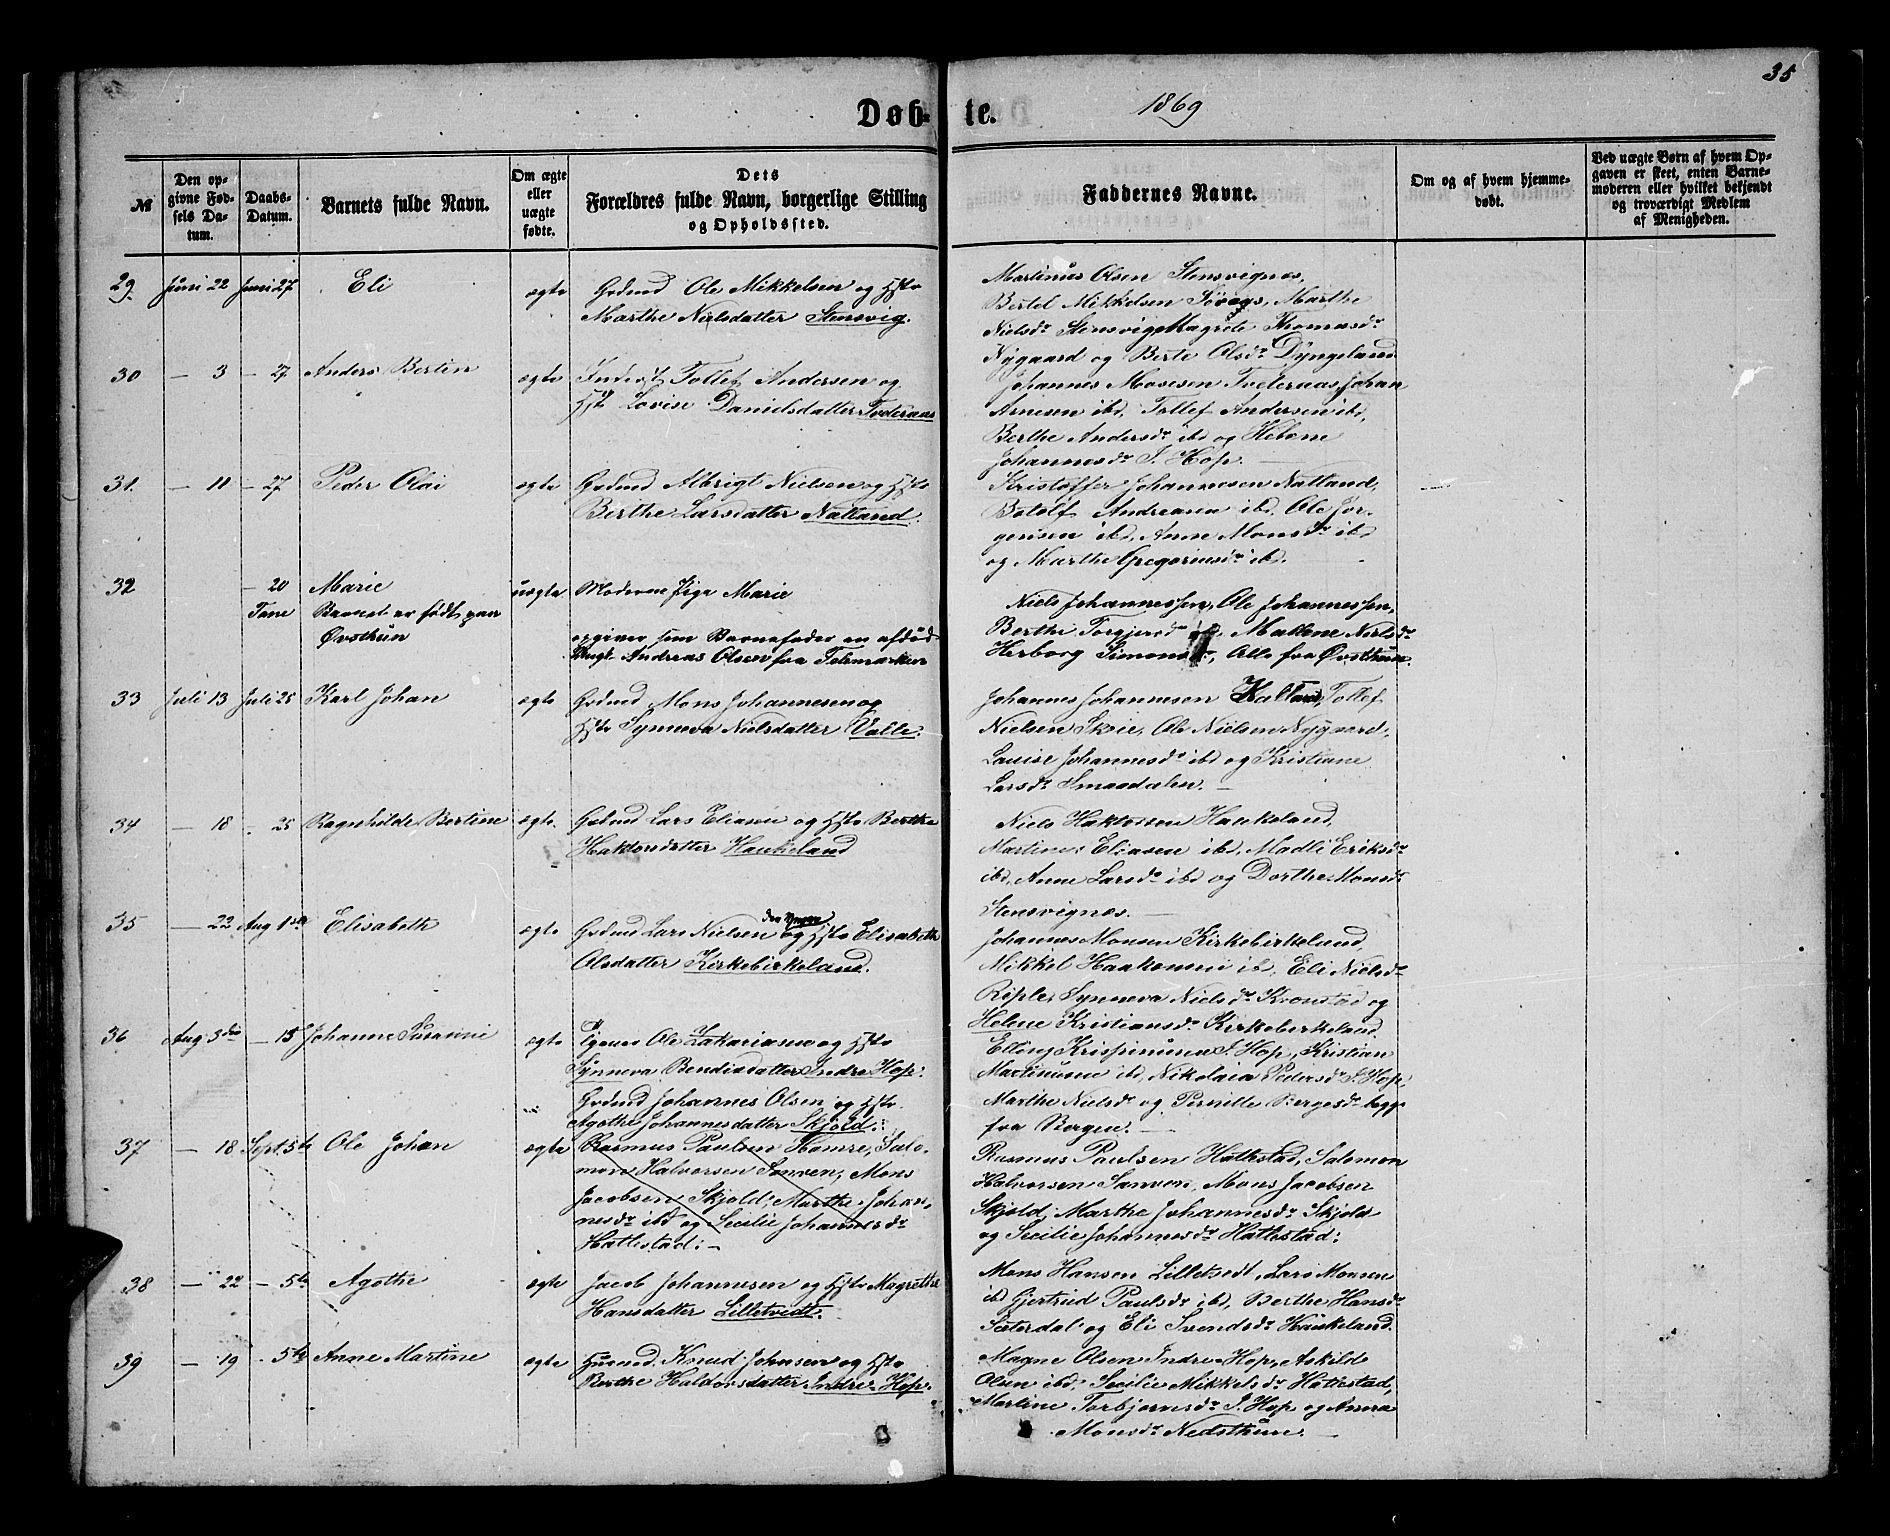 35
Døb- te. 1869
№
Den op-
givne Fød-
sels Da-
tum.
Daabs-
Datum.
Barnets fulde Navn.
Om ægte
eller
uægte
fødte.
Dets
Forældres fulde Navn, borgerlige Stilling
og Opholdssted.
Faddernes Navne.
Om og af hvem hjemme-
døbt.
Ved uægte Børn af hvem Op-
gaven er skeet, enten Barne-
moderen eller hvilket bekjendt
og troværdigt Medlem
af Menigheden.
29 Juni 22 Juni 27 Eli ægte Grdmd Ole Mikkelsen og Hstr
Marthe Nielsdatter Stensvig.
Martinus Olsen Stensvignes,
Bertel Mikkelsen Søvags, Marthe
Nielsdr Stensvig Magrete Thomasdr
Nygaard og Berte Olsdr Dyngeland
30 — 3 — 27 Anders Bertin ægte Inderst Tollef Andersen og
Hst Lovise Danielsdatter Tveteraas
Johannes Mosesen Tveteraas Johan
Arnesen ibd, Tollef Andersen ibd,
Berthe Andersdr ibd og Helene
Johannesdr I. Hop. —
31. — 11 — 27 Peder Olai ægte Grdmd Albrigt Nielsen og Hstr
Birthe Larsdatter Natland.
Kristoffer Johannesen Natland,
Botolf Andreasen ibd, Ole Jør-
gensen ibd, Anne Monsdr ibd
og Marthe Gregoriusdr ibd.
32 — 20 Marie uægte Moderen Pige Marie
Fane Barnet er født paa
Øvsthun
opgiver som Barnefader en afdød
Ungk. Andreas Olsen fra Telemarken
Niels Johannessen, Ole Johannessen,
Berthe Torgjersdr ibd, Mallene Nielsdr
Herborg Simonsdr, Alle fra Øvsthun.
33 Juli 13 Juli 25 Karl Johan ægte Grdmd Mons Johannesen og
Hstr Synneva Nielsdatter Valle.
Johannes Johannesen Kalland, Tollef
Nielsen Skeie, Ole Nielsen Nygaard,
Louise Johannesdr ibd og Kristiane
Larsdr Smaadalen. —
34 — 18 — 25 Ragnhilde Bertine ægte. Grdmd Lars Eliasen og Hstr Berthe
Haktorsdatter Haukeland
Niels Haktorsen Haukeland,
Martinus Eliasen ibd, Madli Eriksdr
ibd, Anne Larsdr ibd og Dorthe Monsdr
Stensvignes. —
35 — 22 Aug 1ste Elisabeth ægte Grdmd Lars Nielsen den Yngre og Hstr Elisabeth
Olsdatter Kirkebirkeland.
Johannes Monsen Kirkebirkeland,
Mikkel Haakonsen ibd, Eli Nielsdr
Riple, Synneva Nielsdr Kronstad og
Helene Kristiansdr Kirkebirkeland
36 Aug 3die — 15 Johanne Susanne ægte Ole Zakariasen og Hstr
Synneva Bendixdatter Indre Hop.
Elling Krispinusen I. Hop, Kristian
Martinusen ibd, Nikolaia Pedersdr I. Hop,
Marthe Nielsdr og Pernille Bergesdr begge
fra Bergen. —
37 — 18 Sept. 5te Ole Johan ægte Grdmd Johannes Olsen og Hstr
Agothe Johannesdatter Skjold.
Rasmus Paulsen Hamre, Salo-
mon Halvorsen Sanven, Mons
Jacobsen Skjold, Marthe Johan-
nesdr ibd og Secilie Johannesdr
Hattestad: —
Rasmus Paulsen Hattestad, Salomon
Halvorsen Sanven, Mons Jacobsen
Skjold, Marthe Johannesdr Skjold
og Secilie Johannesdr Hattestad:
38 — 22 — 5te Agothe ægte Jacob Johannesen og Hstr Magrethe
Hansdatter Lilletvedt.
Mons Hansen Lilletvedt, Lars Monsen
ibd Gjertrud Paulsdr ibd, Berthe Hansdr
Sæterdal og Eli Svendsdr Haukeland.
39 — 19 — 5te Anne Martine ægte Husmd. Knud Johnsen og Hstr
Berthe Haldorsdatter Indre Hop.
Magne Olsen Indre Hop, Askild
Olsen ibd, Secilie Mikkelsdr Hattestad,
Martine Torbjørnsdr I. Hop og Anna
Monsdr Nedsthun. —